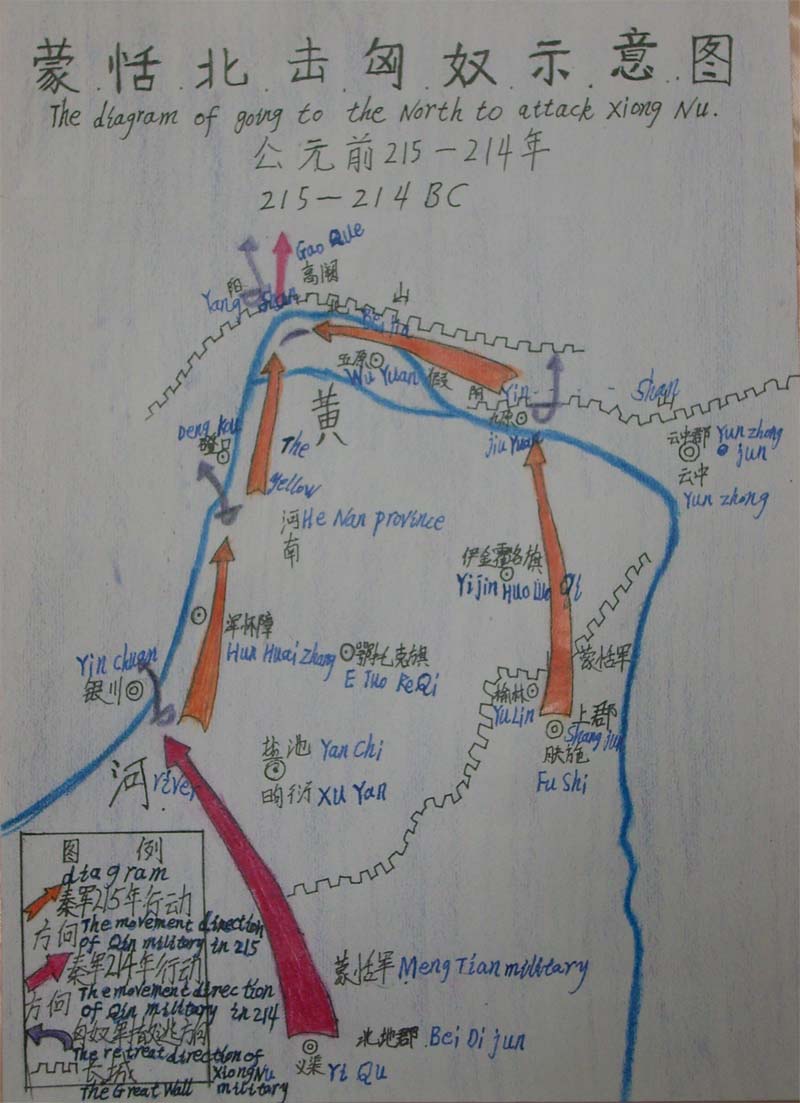 蒙恬北击匈奴示意图
The diagram of going to the North to attack Xiong Nu.
公元前215-214年
215-214 BC
Gao Que
高阙
阳
Yang Shan
山
北
Bei Ha
五原
Wu Yuan
假
阴
Yin
Shan
九原
jiu Yuan
云中郡
Yun zhong
jun
云中
Yun zhong
黄
Deng Kou
磴口
The
yellow
河
南
He Nan province
伊金霍洛旗
Yijin Huo Luo Qi
浑怀障
Hun Huai Zhang
鄂托克旗
E Tuo Ke Qi
蒙恬军
Yin Chuan
银川
榆林
Yu Lin
上郡
Shang jun
肤施
Fu Shi
盐池
Yan Chi
昫衍
Xu Yan
河
river
图 例
diagram
秦军215年行动
方向
The movement direction
of Qin military in 215
秦军214年行动
方向
The movement direction
of Qin military in 214
匈奴军
The retreat direction of
Xiong Nu
military
长城
The Great Wall
蒙恬军
Meng Tian military
北地郡
Bei Di jun
义渠
Yi Qu